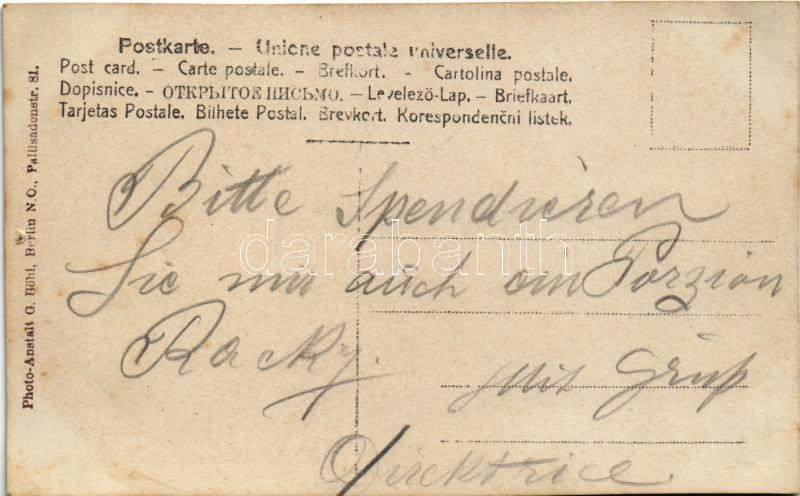 Postkarte. – Unione postale universelle.
Post card. – Carte postale. – Brefkort. - Cartolina postale.
Dopisnice. – ОТКРЫТОЕ ПИСЬМО. – Levelezö-Lap. – Briefkaart.
Tarjetas Postale. Bilhete Postal. Brevkort. Korespondenčni listek.
Photo-Anstalt G. Böhl, Berlin N.O., Pallisadenstr. 81.
Bitte Spendieren
Sie mir auch ein Porzion
Racky.
Mit Gruß
Direktrice.
darabanth